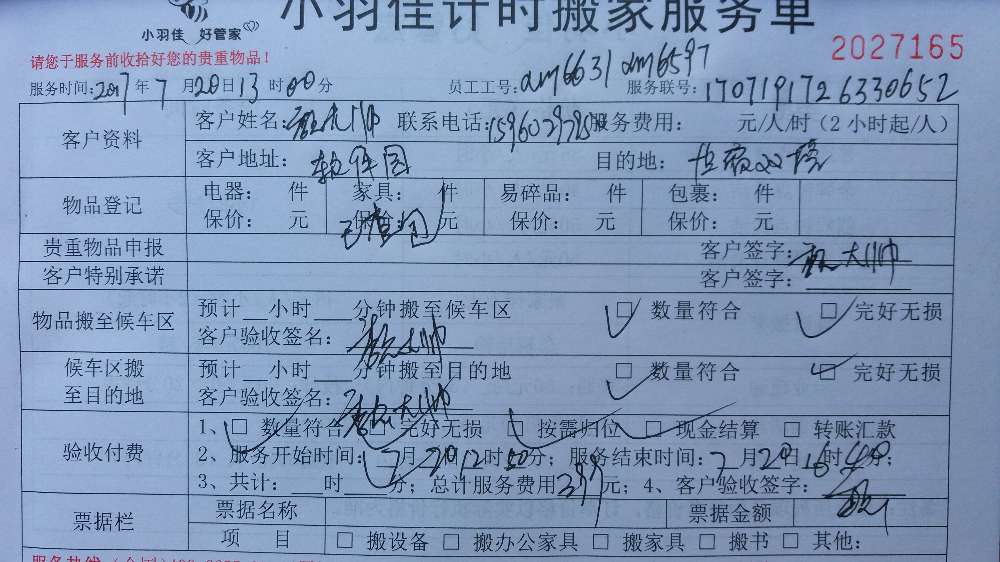 小羽佳计时搬家服务单
小羽佳 好管家
请您于服务前收拾好您的贵重物品！
2027165
服务时间：2017年7月20日13时00分 员工工号：am6631 am6597 服务联号：1707191726330652
客户资料 客户姓名： 大帅 联系电话： 服务费用： 元/人/时（2小时起/人）
客户地址：软件园 目的地：
物品登记 电器： 件 家具： 件 易碎品： 件 包裹： 件
保价： 元 保价： 元 保价： 元 保价： 元
贵重物品申报 客户签字： 大帅
客户特别承诺 客户签字：
物品搬至候车区 预计__小时___分钟搬至候车区 □ 数量符合 □ 完好无损
客户验收签名： 大帅
候车区搬至目的地 预计__小时___分钟搬至目的地 □ 数量符合 □ 完好无损
客户验收签名： 大帅
验收付费 1、□ 数量符合 □ 完好无损 □ 按需归位 □ 现金结算 □ 转账汇款
2、服务开始时间：7月20日12时50分；服务结束时间：7月20日16时40分；
3、共计：___时___分；总计服务费用399元；4、客户验收签字：
票据栏 票据名称 票据金额
项 目 □ 搬设备 □ 搬办公家具 □ 搬家具 □ 搬书 □ 其他：